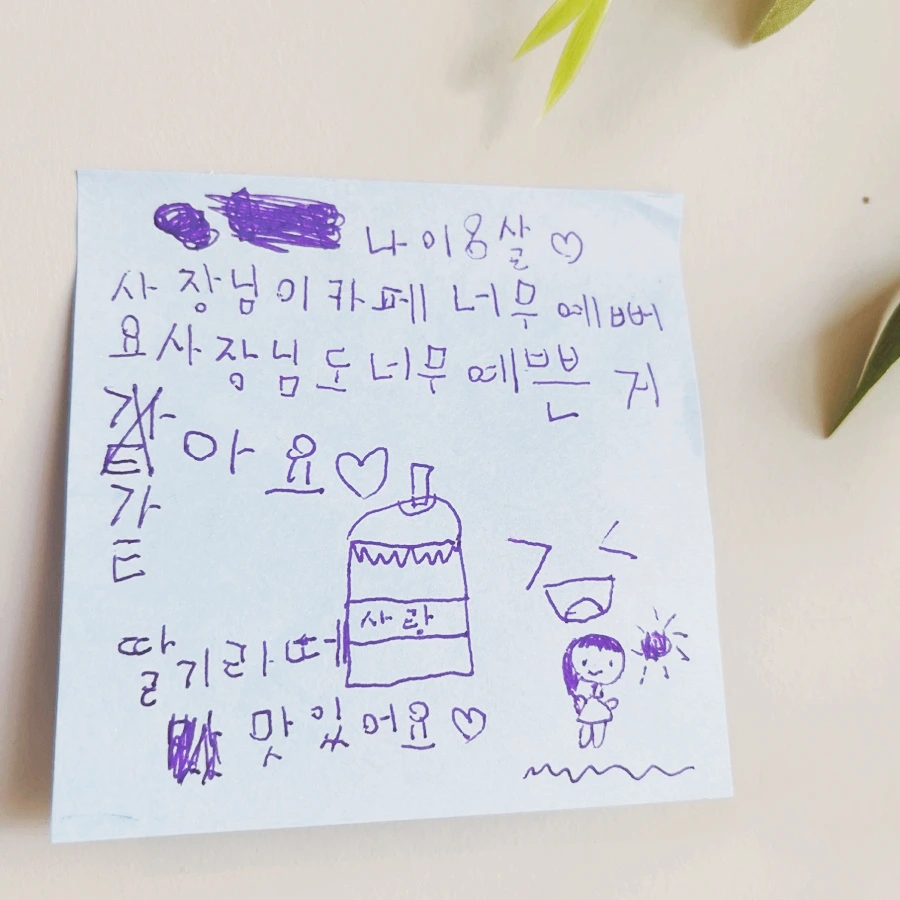 나이 8살♡
사장님이 카페 너무 예뻐
요 사장님도 너무 예쁜 거
같아요♡
사랑
딸기라떼
맛있어요♡